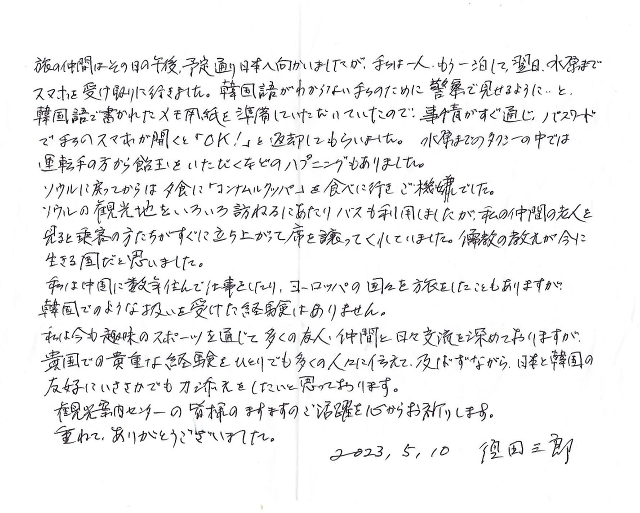 旅の仲間はその日の午後、予定通り日本へ向かいましたが、私は一人、もう一泊して、翌日、水原まで
スマホを受け取りに行きました。韓国語がわからない私のために警察で見せるように…と、
韓国語で書かれたメモ用紙を準備していただいていたので、事情がすぐ通じ、パスワード
で私のスマホが開くと「OK!」と返却してもらいました。水原までのタクシーの中では
運転手の方から飴玉をいただくなどのハプニングもありました。
ソウルに戻ってからは夕食に「コンナムルクッパ」を食べに行きご機嫌でした。
ソウルの観光地をいろいろ訪ねるにあたりバスも利用しましたが、私の仲間の老人を
見ると乗客の方たちがすぐに立ち上がって席を譲ってくれていました。儒教の教えが今に
生きる国だと思いました。
私は中国に数年住んで仕事をしたり、ヨーロッパの国々を旅をしたこともありますが、
韓国でのような扱いを受けた経験はありません。
私は今も趣味のスポーツを通じて多くの友人、仲間と日々交流を深めておりますが、
貴国での貴重な経験をひとりでも多くの人々に伝えて、及ばずながら、日本と韓国の
友好にいささかでも力添えをしたいと思っております。
観光案内センターの皆様のますますのご活躍を心からお祈りします。
重ねて、ありがとうございました。
2023,5,10 田三郎